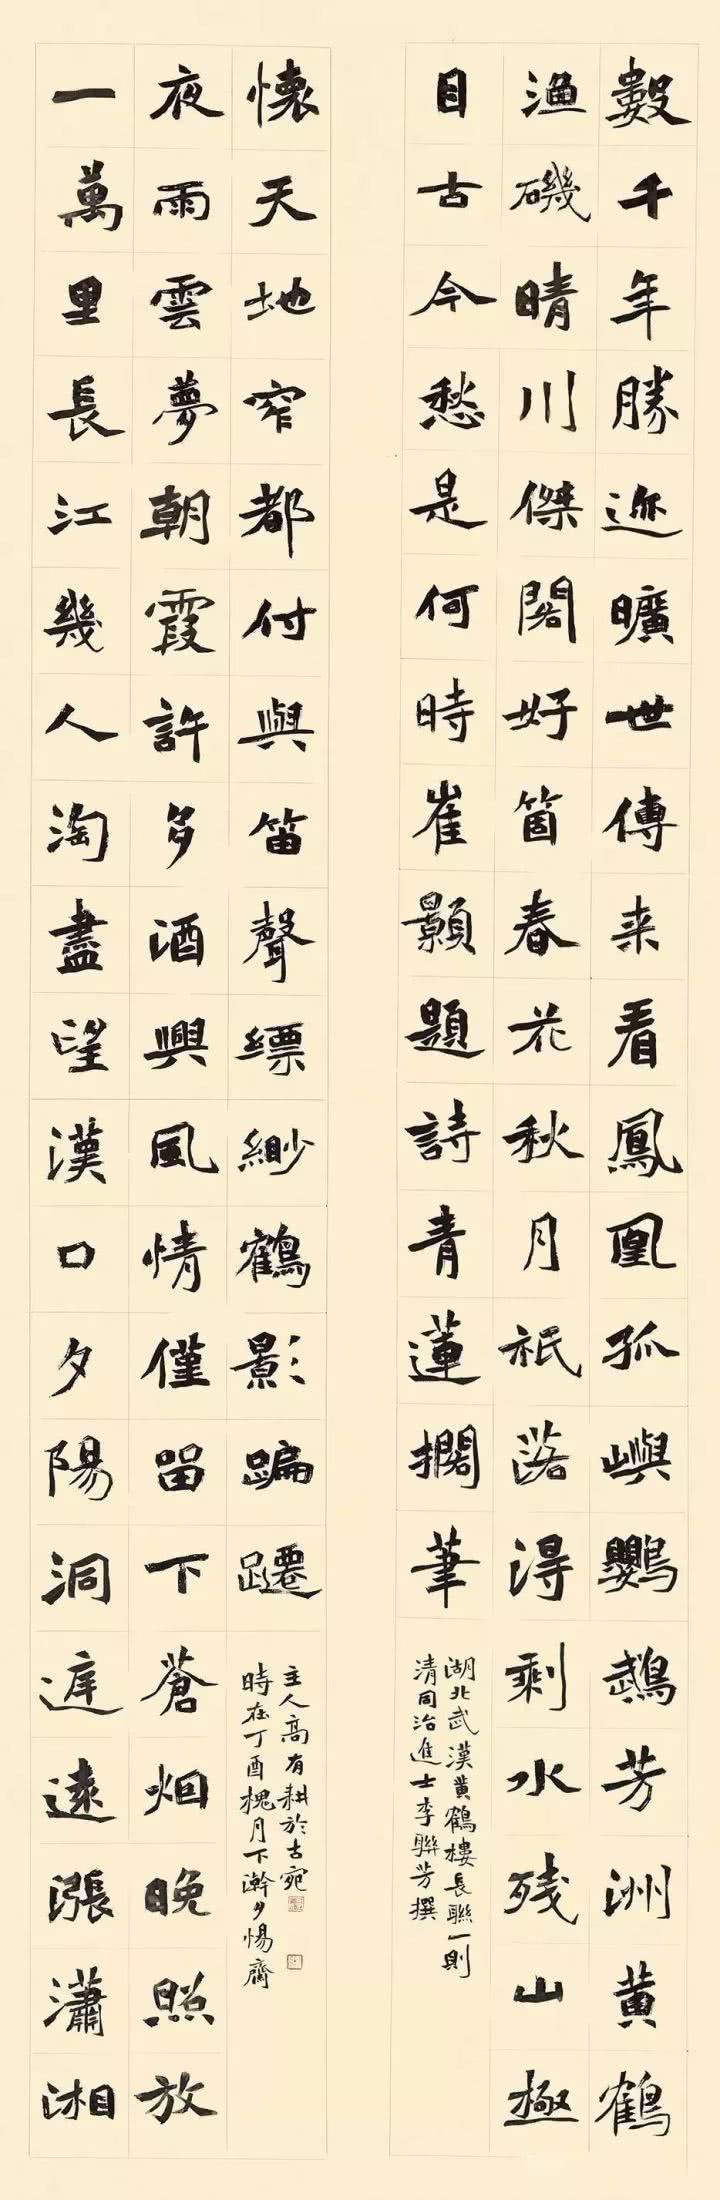 數千年勝迹曠世傳来看鳳凰孤嶼鸚鵡芳洲黄鶴
漁磯晴川傑閣好箇春花秋月祇落得剩水残山極
目古今愁是何時崔顥題詩青蓮擱筆
湖北武漢黄鶴樓長聯一則
清同治進士李聯芳撰
一萬里長江幾人淘盡望漢口夕陽洞庭遠漲瀟湘
夜雨雲夢朝霞許多酒興風情僅留下蒼烟晚照放
懷天地窄都付與笛聲縹緲鶴影蹁躚
時在丁酉槐月下澣夕惕齋
主人高有耕於古宛